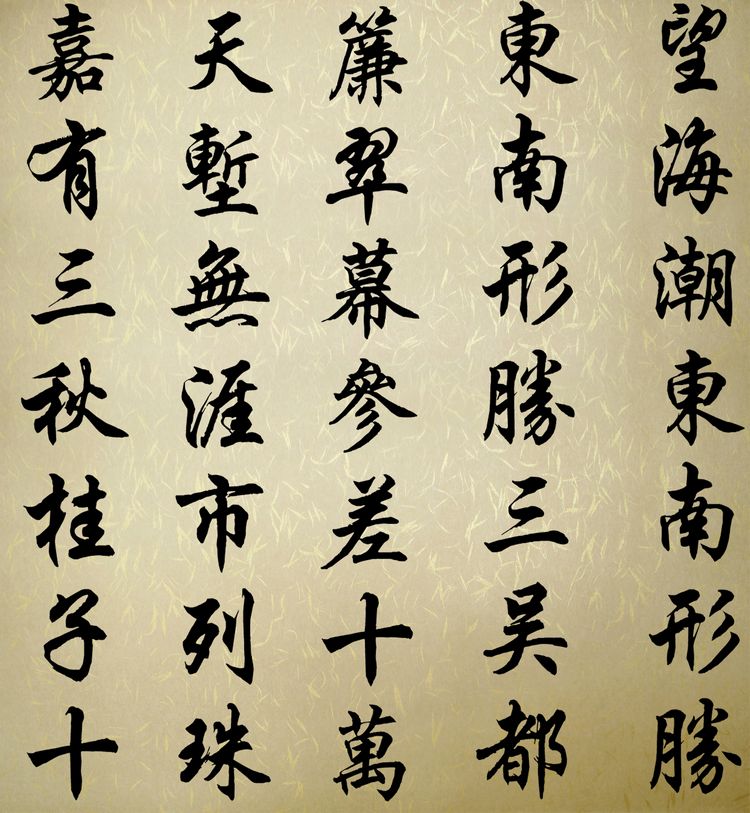 望海潮東南形勝
東南形勝三吴都
簾翠幕參差十萬
天塹無涯市列珠
嘉有三秋桂子十